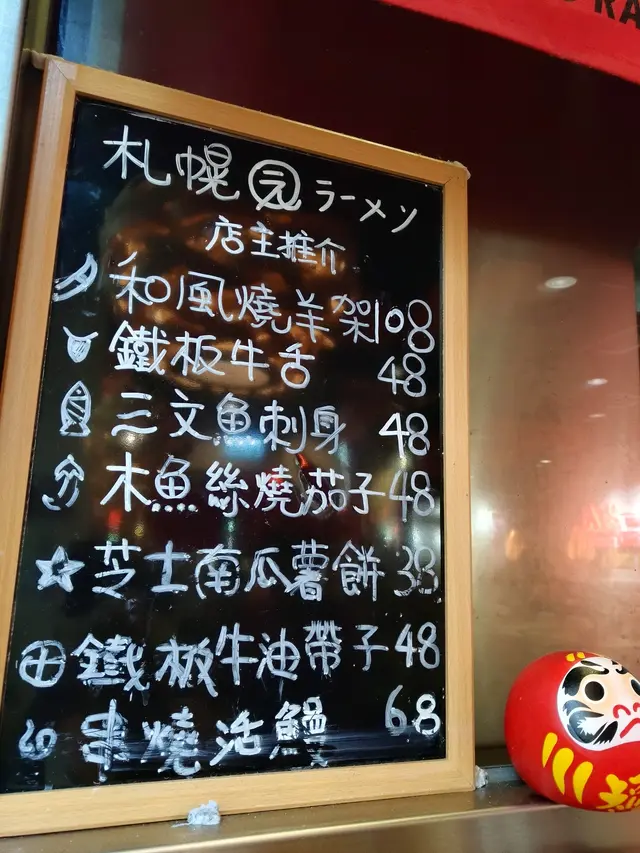 札幌元ラーメン
店主推介
和風燒羊架108
鐵板牛舌 48
三文魚刺身 48
木魚絲燒茄子48
芝士南瓜薯餅 38
鐵板牛油帶子48
串燒活鰻 68
RA